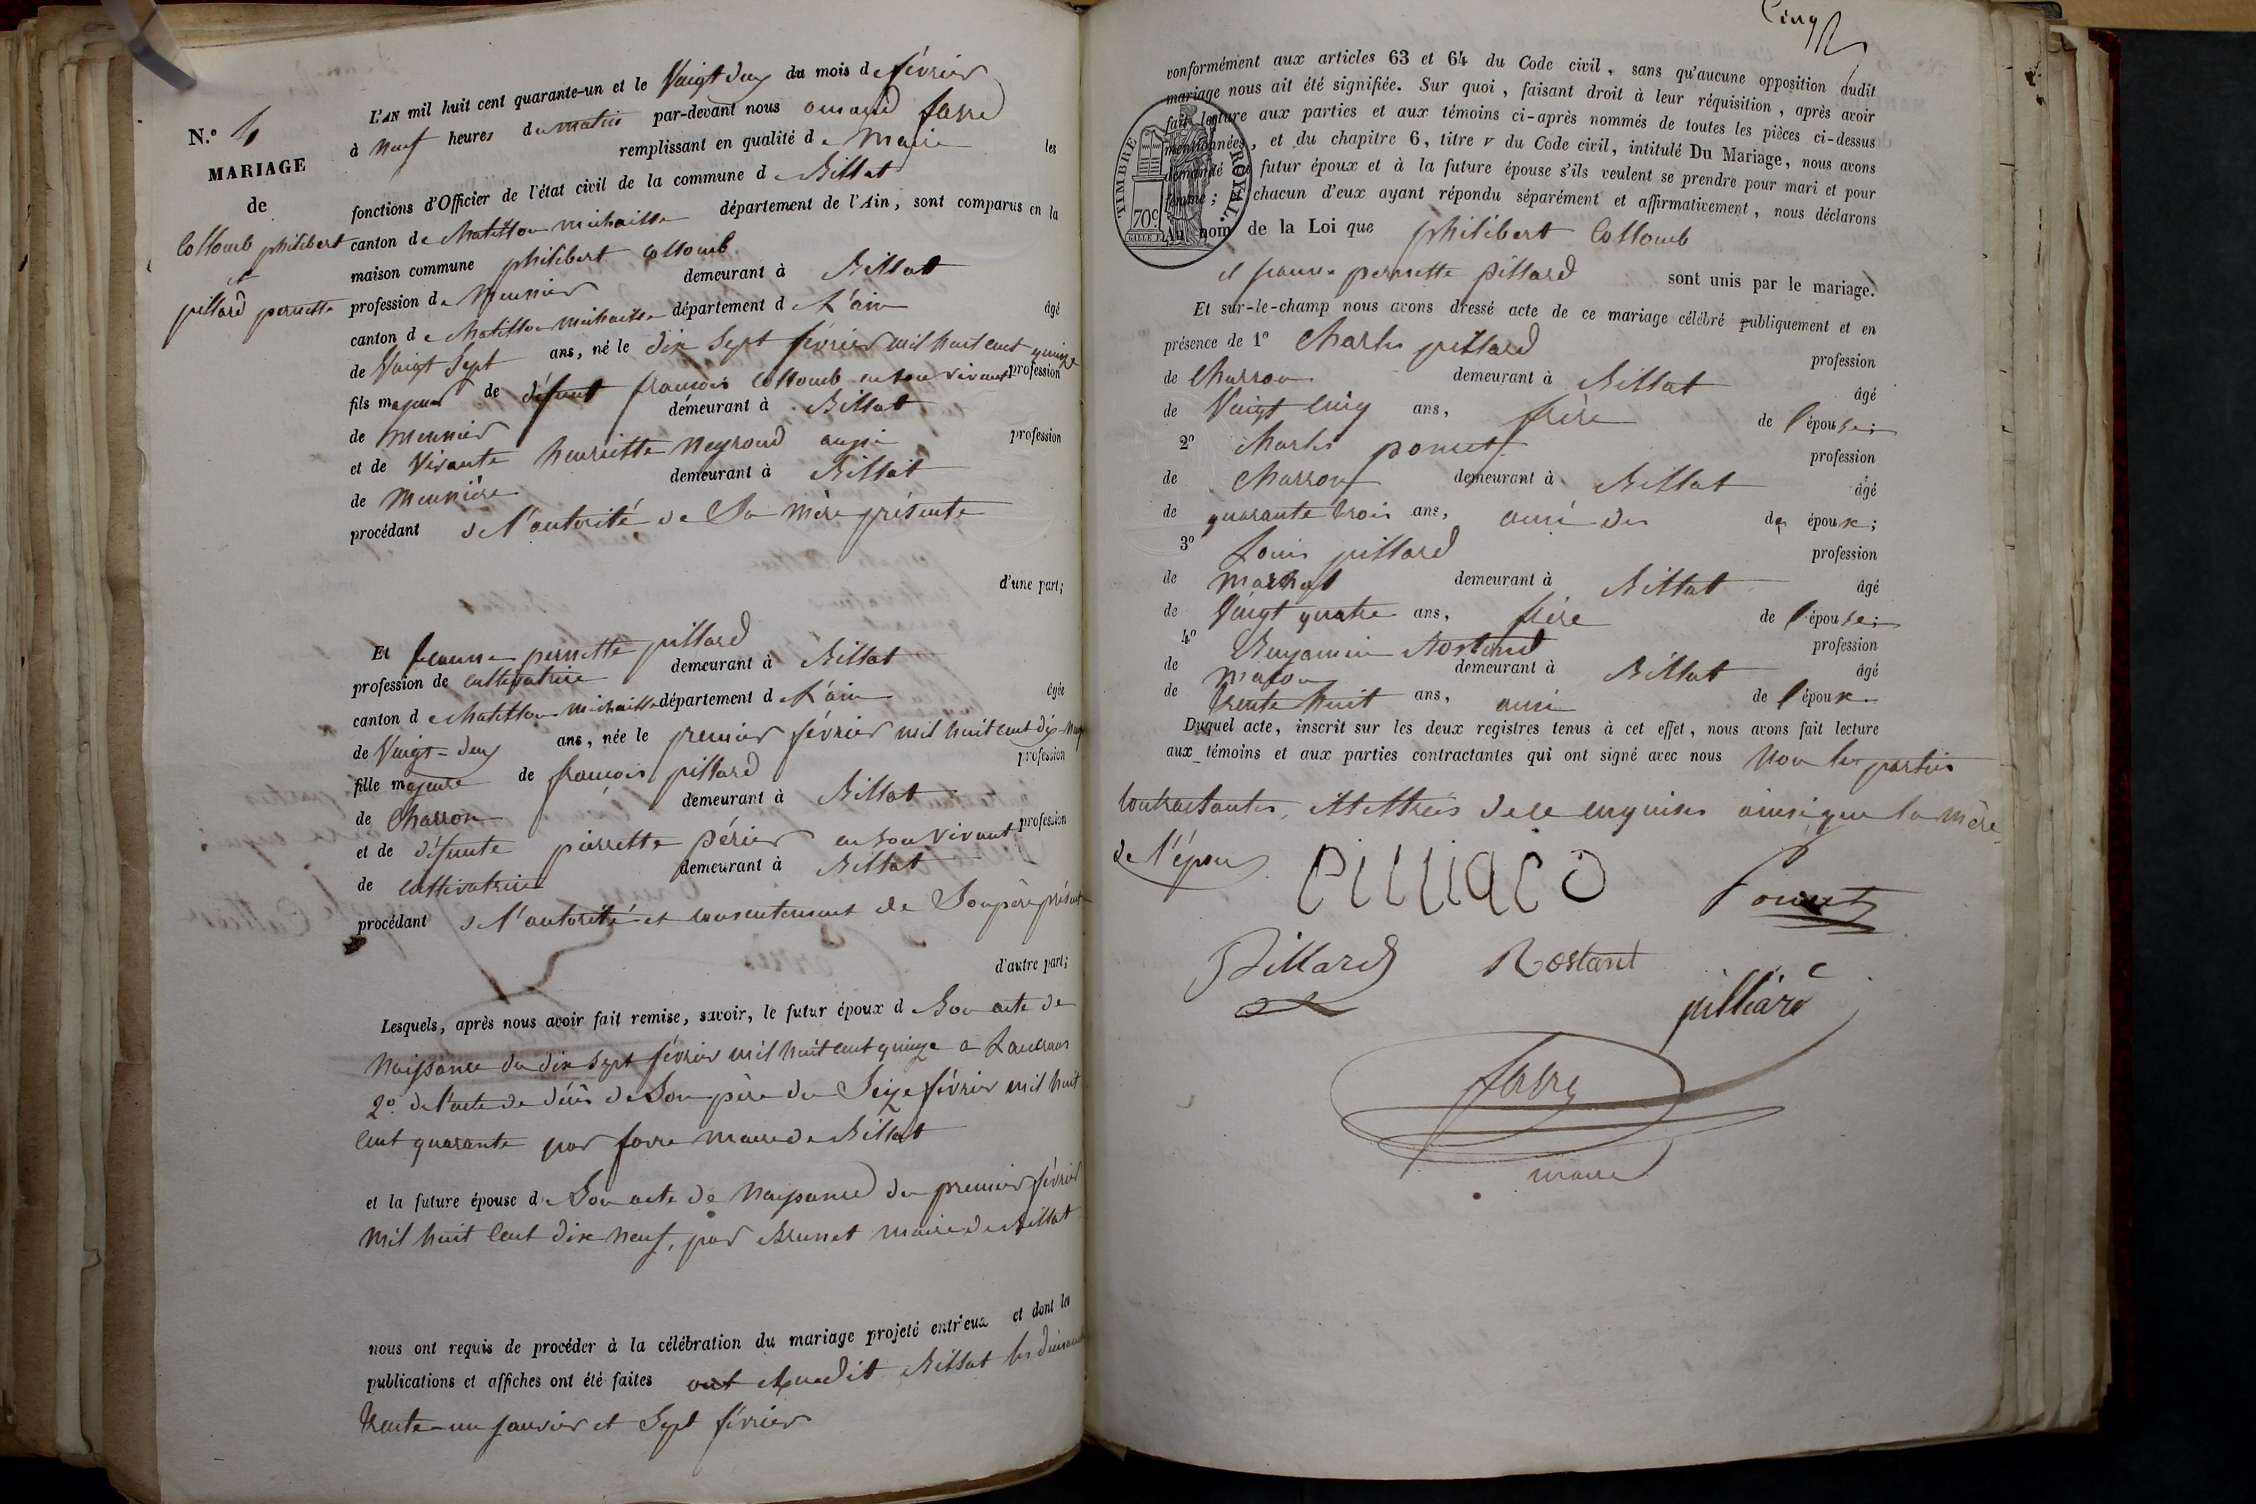 N.º 4
MARIAGE
de
Collomb philibert
et
pillard pernette
L'AN mil huit cent quarante-un et le Vaigt deux du mois de février
à neuf heures du matin par-devant nous amand favre
remplissant en qualité de Maire les
fonctions d'Officier de l'état civil de la commune de Billat
canton de Chatillon michaille département de l'Ain, sont comparus en la
maison commune philibert Collomb
profession de Meunier demeurant à Billat
canton de Chatillon michaille département de L'ain âgé
de Vaigt Sept ans, né le dix Sept février mil huit cent quinze
fils majeur de défunt françois Collomb en son vivant profession
de meunier demeurant à Billat
et de Vivante henriette Neyroud aussi profession
de Meunière demeurant à Billat
procédant de l'autorité de Sa mère présente
d'une part;
Et jeanne pernette pillard
profession de cultivatrice demeurant à Billat
canton de Chatillon michaille département de L'ain âgée
de Vaigt-deux ans, née le premier février mil huit cent dix-neuf
fille majeure de françois pillard profession
de Charron demeurant à Billat
et de défunte pierrette périer en son vivant profession
de cultivatrice demeurant à Billat
procédant de l'autorité et consentement de Son père présent
d'autre part;
Lesquels, après nous avoir fait remise, savoir, le futur époux de Son acte de
Naissance du dix Sept février mil huit cent quinze a Lancrans
2º de l'acte de décès de Son père du Seize février mil huit
cent quarante par favre maire de Billat
et la future épouse de Son acte de Naissance du premier février
mil huit Cent dix neuf, par Brunet maire de Billat
nous ont requis de procéder à la célébration du mariage projeté entr'eux et dont les
publications et affiches ont été faites audit Billat les dimanches
trente-un janvier et Sept février
Cinq
conformément aux articles 63 et 64 du Code civil, sans qu'aucune opposition dudit
mariage nous ait été signifiée. Sur quoi, faisant droit à leur réquisition, après avoir
fait lecture aux parties et aux témoins ci-après nommés de toutes les pièces ci-dessus
mentionnées, et du chapitre 6, titre v du Code civil, intitulé Du Mariage, nous avons
demandé au futur époux et à la future épouse s'ils veulent se prendre pour mari et pour
femme; chacun d'eux ayant répondu séparément et affirmativement, nous déclarons
Au nom de la Loi que philibert Collomb
et jeanne pernette pillard sont unis par le mariage.
TIMBRE ROYAL.
70 c
Et sur-le-champ nous avons dressé acte de ce mariage célébré publiquement et en
présence de 1º Charles pillard profession
de Charron demeurant à Billat âgé
de Vaigt cinq ans, frère de l'épouse;
2º Charles poncet profession
de Charron demeurant à Billat âgé
de quarante trois ans, ami des des époux;
3º Louis pillard profession
de marchal demeurant à Billat âgé
de Vaigt quatre ans, frère de l'épouse;
4º Benjamin Rostand profession
de maçon demeurant à Billat âgé
de trente huit ans, ami de l'époux.
Duquel acte, inscrit sur les deux registres tenus à cet effet, nous avons fait lecture
aux témoins et aux parties contractantes qui ont signé avec nous Non les parties
Contractantes, illettrées de ce enquises ainsi que la mère
de l'époux.
Poncet
Pillard Rostant
pilliard
favre
maire